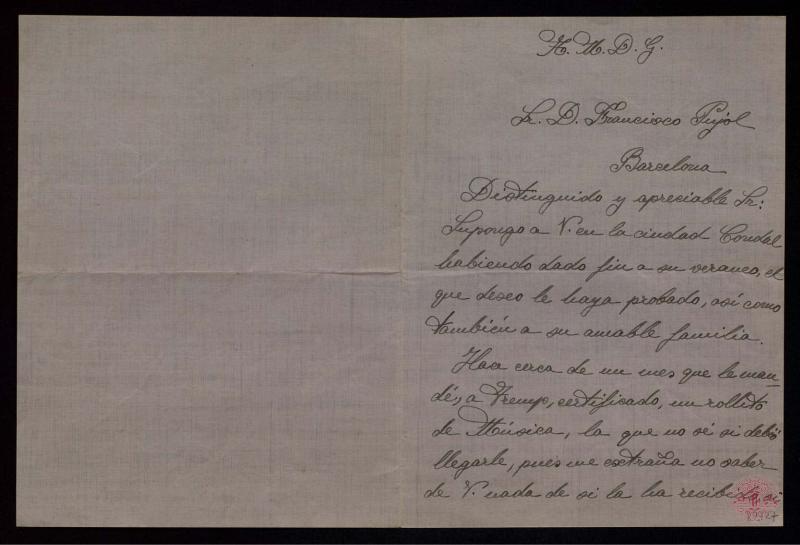 A. M. D. G.
Sr. D. Francisco Pujol
Barcelona
Distinguido y apreciable Sr:
Supongo a V. en la ciudad Condal
habiendo dado fin a su veraneo, el
que deseo le haya probado, así como
también a su amable familia.
Hace cerca de un mes que le man-
dé, a Tremp, certificado, un rollito
de Música, la que no sé si debió
llegarle, pues me extraña no saber
de V. nada de si la ha recibido, si